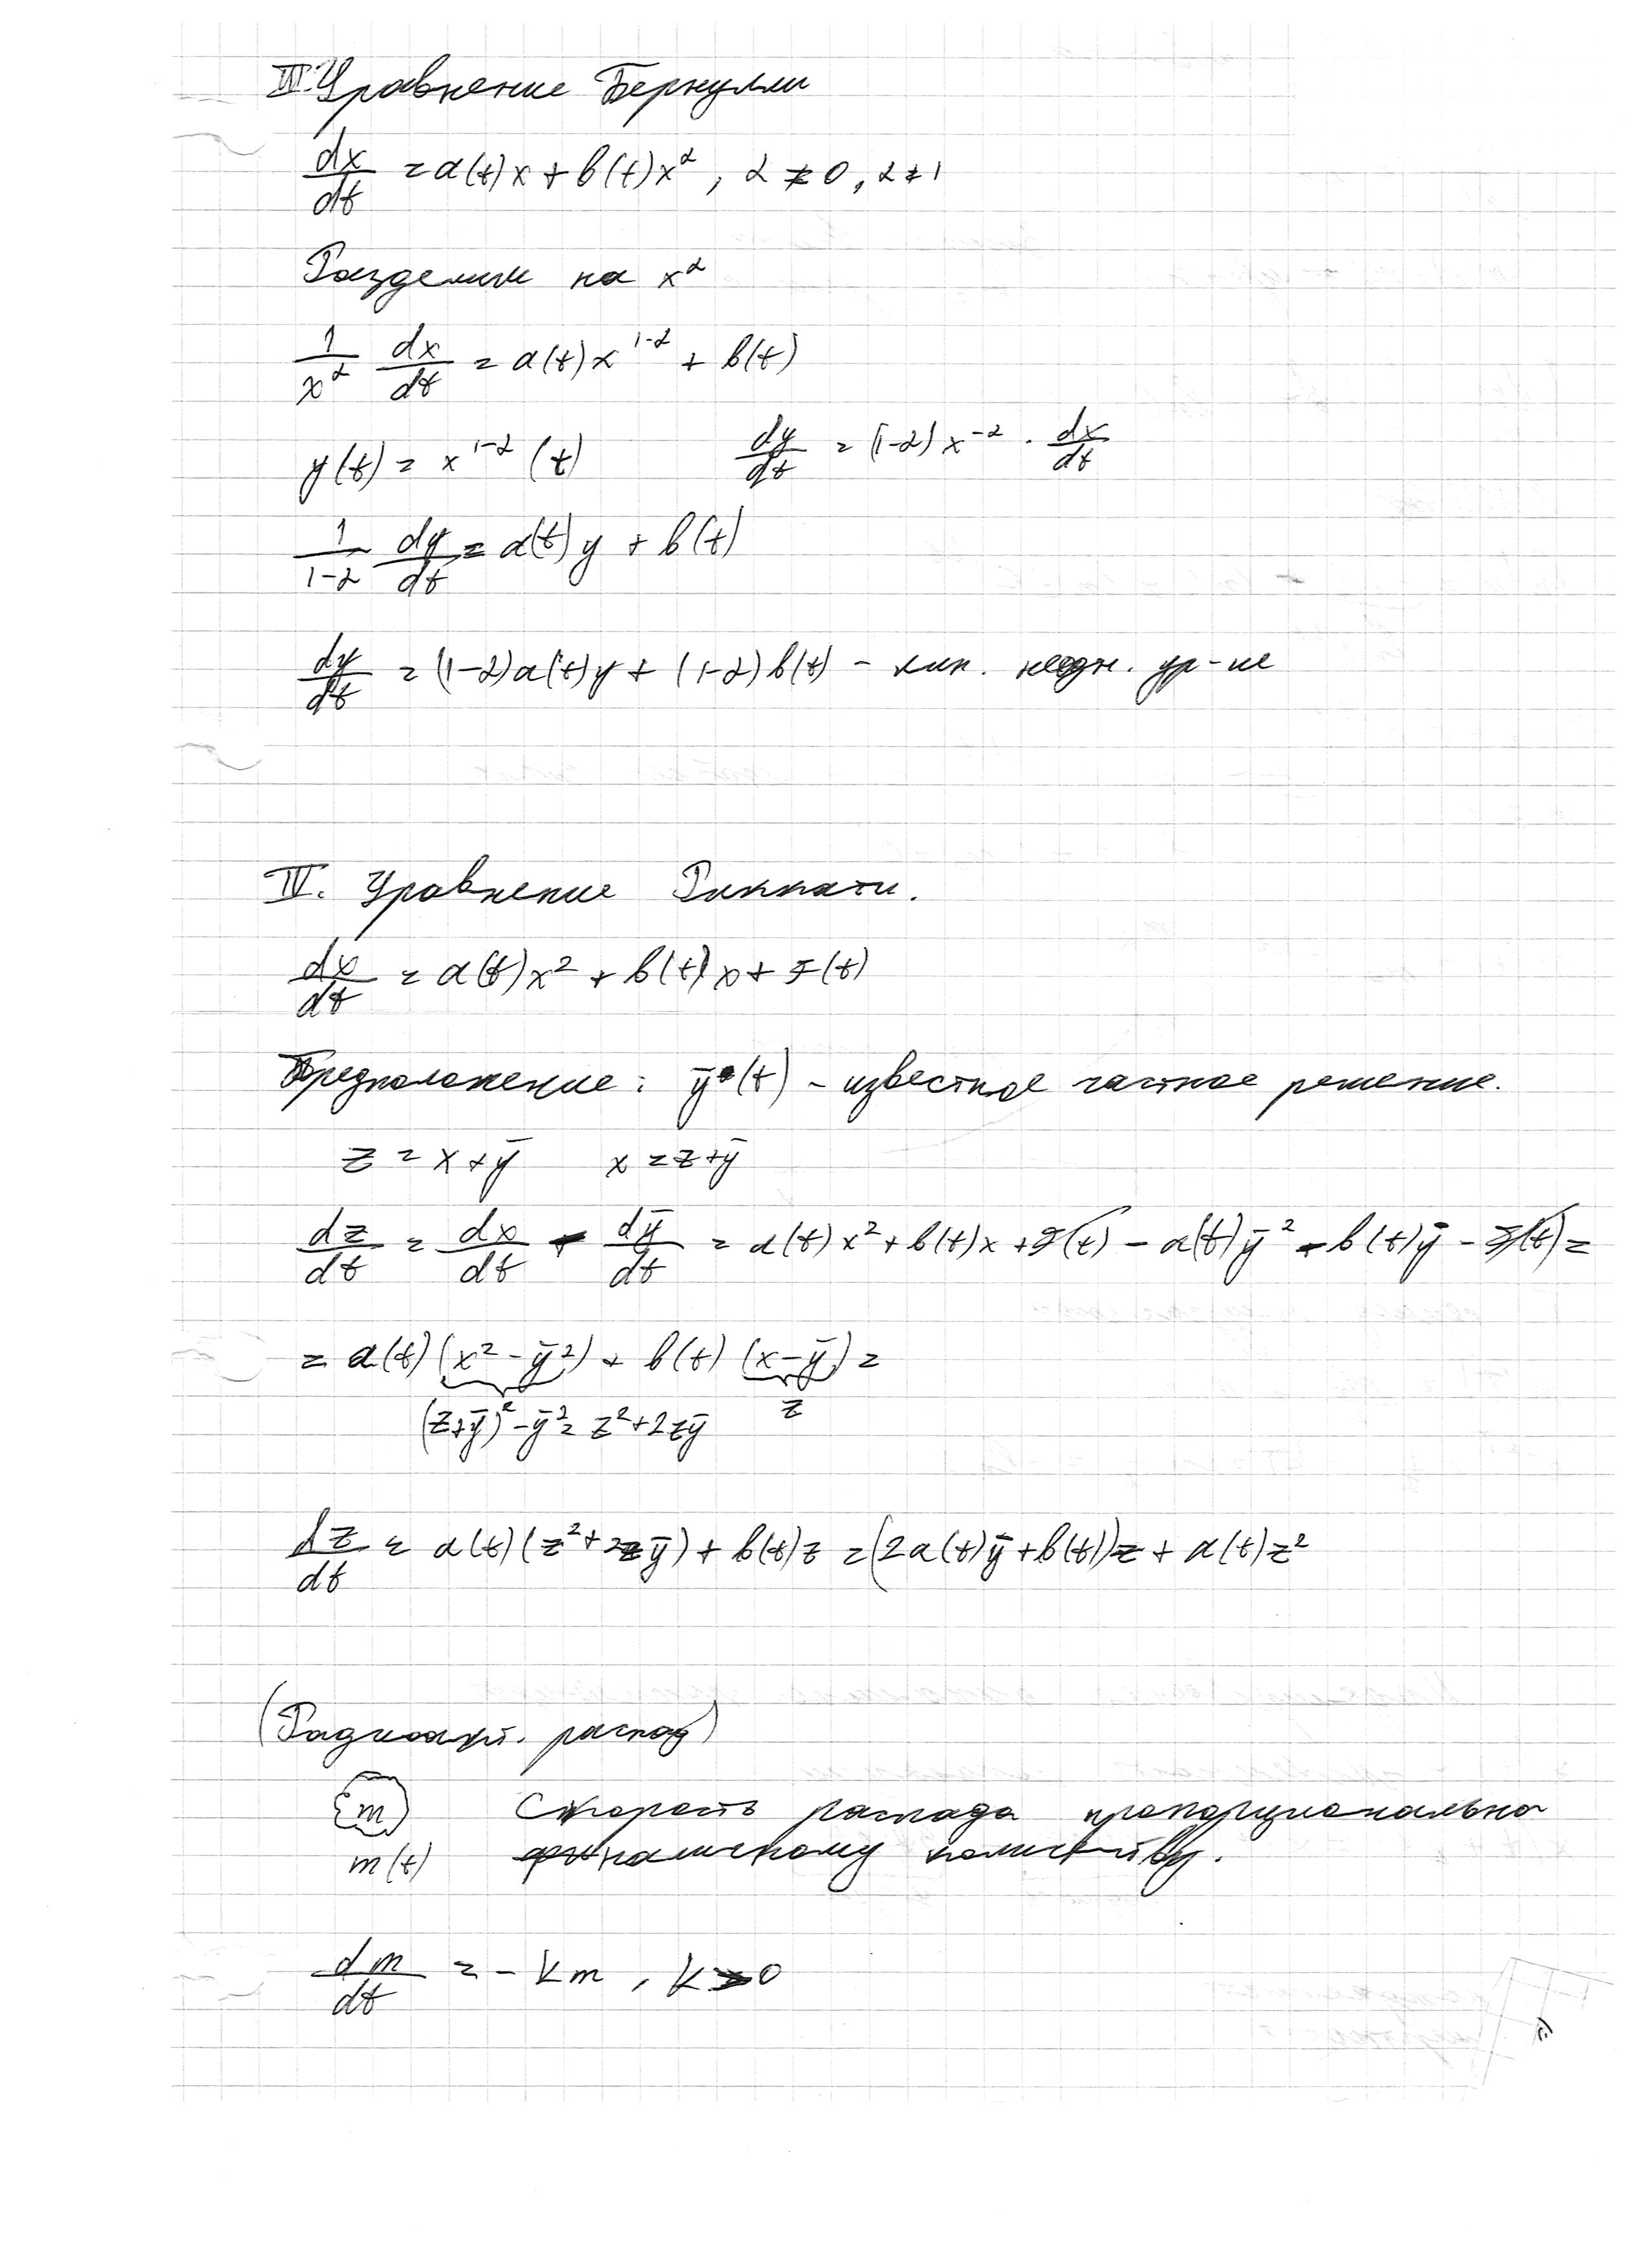 III. Уравнение Бернулли
dx/dt = a(t)x + b(t)x^α, α ≠ 0, α ≠ 1
Разделим на x^α
1/x^α dx/dt = a(t)x^(1-α) + b(t)
y(t) = x^(1-α)(t) dy/dt = (1-α)x^(-α) · dx/dt
1/(1-α) dy/dt = a(t)y + b(t)
dy/dt = (1-α)a(t)y + (1-α)b(t) - лин. неодн. ур-ие
IV. Уравнение Риккати.
dx/dt = a(t)x² + b(t)x + f(t)
Предположение: ȳ(t) - известное частное решение.
z = x + ȳ x = z + ȳ
dz/dt = dx/dt - dȳ/dt = a(t)x² + b(t)x + f(t) - a(t)ȳ² - b(t)ȳ - f(t) =
= a(t)(x² - ȳ²) + b(t)(x - ȳ) =
(z+ȳ)² - ȳ² = z² + 2zȳ z
dz/dt = a(t)(z² + 2zȳ) + b(t)z = (2a(t)ȳ + b(t))z + a(t)z²
(Радиоакт. распад)
m Скорость распада пропорциональна
m(t) наличному количеству.
dm/dt = -km, k>0